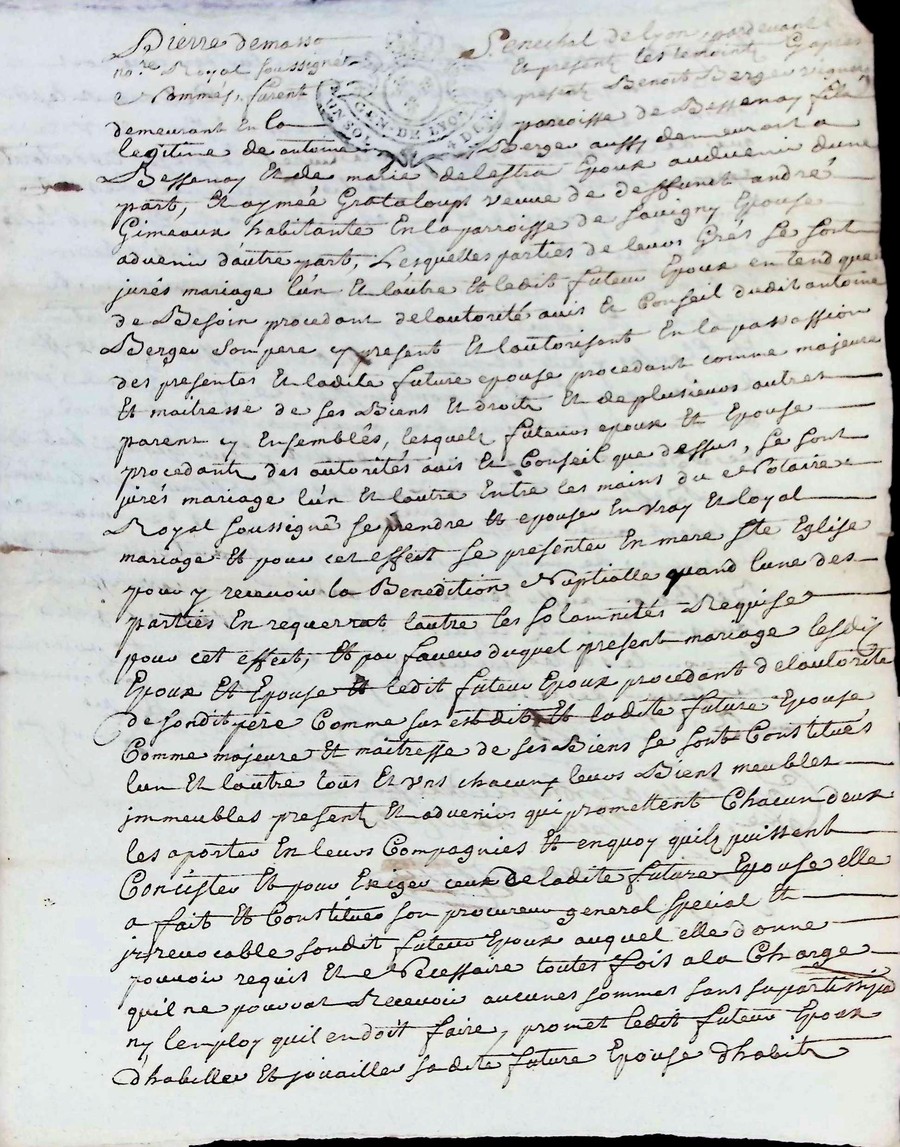 Pierre demasso Senechal de lyon, pardevant
no.re Royal soussigné Et present les temoints
Nommes, furent present Benoit Berger vigneron
demeurant En la paroisse de Bessenay fils
legitime de antoine Berger aussy demeurant a
Bessenay Et de marie delestra Epoux advenir dune
part, Et aymée Grataloup veuve de deffunct andré
Gimeaux habitante En la parroisse de Savigny Epouse
advenir d'autre part, Lesquelles parties de leurs Grés se sont
jurés mariage l'un Et l'autre Et ledit futeur Epoux en tend que
de Besoin procedant de lautorité avis Et Conseil dudit antoine
Berger son pere y present Et l'autorisant En la passassion
des presentes Et ladite future epouse procedant comme majeure
Et maitresse de ses Biens Et droits Et de plusieurs autres
parent y Ensemblés, lesquels futeurs epoux Et Epouse
procedants des autorités avis Et Conseil que dessus, se sont
jurés mariage l'un Et lautre Entre les mains du Notaire
Royal soussigné se prendre Et epouser En vray Et loyal
mariage Et pour cet effect se presenter En mere Ste Eglise
pour y recevoir la Benedition Nuptialle quand lune des
parties En requerrat lautre les solamnités Requise
pour cet effect, Et par faveur duquel present mariage lesdits
Epoux Et Epouse Et ledit futeur Epoux procedant de lautorité
de sondit père Comme sus est dit Et ladite future Epouse
Comme majeure Et maitresse de ses Biens se sont Constitués
lun Et lautre tous Et uns chacuns leurs Biens meubles
jmmeubles present Et advenirs qui promettent Chacun deux
les aporter En leurs Compagnies Et enquoy quils puissent
Concister Et pour Exiger ceux de ladite future Epouse elle
a fait Et Constitués son procureur general special Et
jrrevocable sondit futeur Epoux auquel elle donne
pouvoir requis Et Necessaire toutes fois a la Charge
quil ne pouvrat Recevoir aucunes sommes sans sa
ny lemploy quil en doit faire, promet ledit futeur Epoux
d'habiller Et jouailler sadite future Epouse dhabits